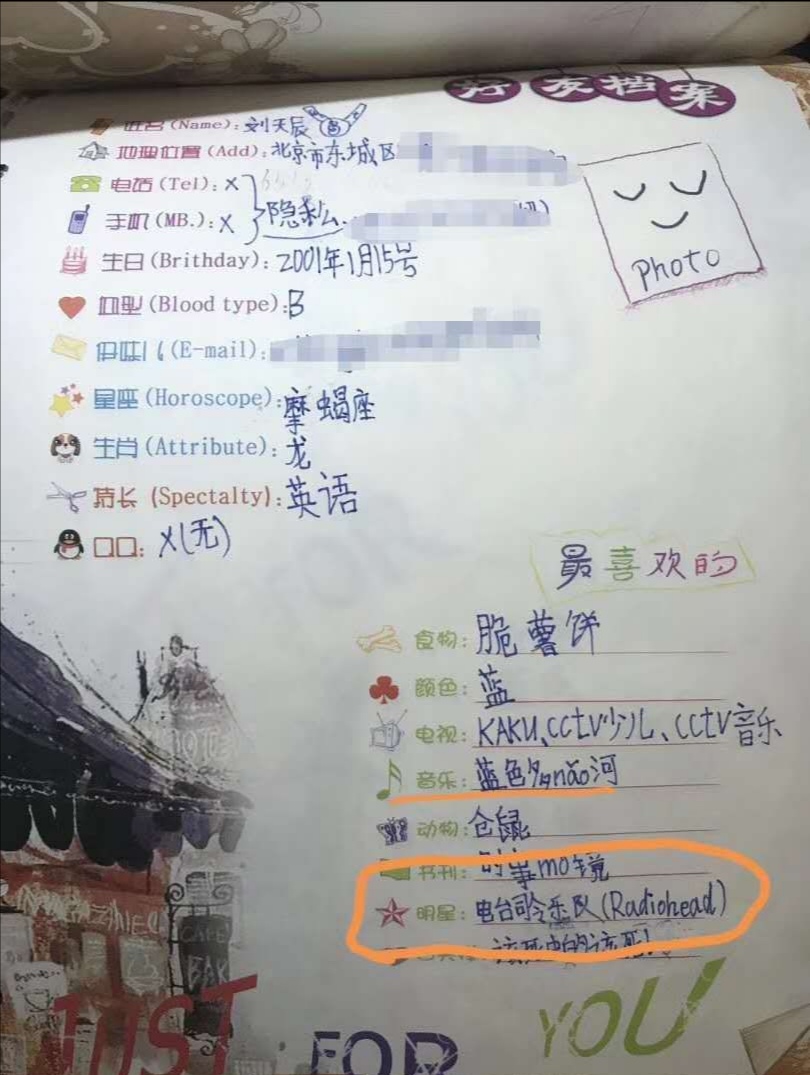 好友档案
姓名(Name):刘天辰
地理位置(Add):北京市东城区
电话(Tel):X
手机(MB.):X
隐私
生日(Brithday):2001年1月15号
血型(Blood type):B
伊妹儿(E-mail):
星座(Horoscope):摩蝎座
生肖(Attribute):龙
特长(Spectalty):英语
QQ:X(无)
photo
最喜欢的
食物:脆薯饼
颜色:蓝
电视:KAKU、CCtV少儿、CCtV音乐
音乐:蓝色多năo河
动物:仓鼠
书刊:时事mo镜
明星:电台司令乐队(Radiohead)
JUST FOR YOU